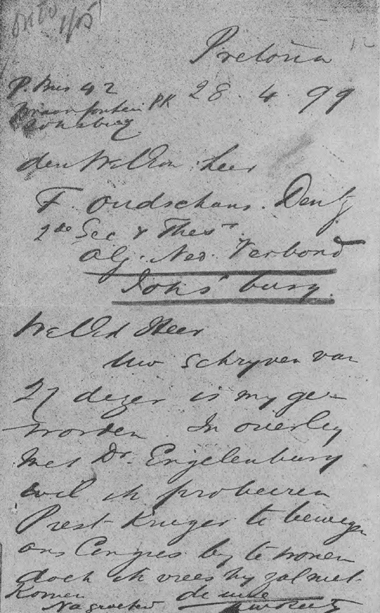 Pretoria
28.4.99
P. Bus 42
Braamfontein PK
Johsburg
den WelEdn Heer
F. Oudschans Dentz
2de Sec & Thesr
Alg. Ned. Verbond
Johs'burg.
WelEd Heer
Uw schryven van
27 dezer is my ge-
worden In overleg
met Dr. Engelenburg
wil ik probeeren
Prest Kruger te bewegen
ons Congres by te wonen
doch ik vrees hy zal niet
komen
Na groeten